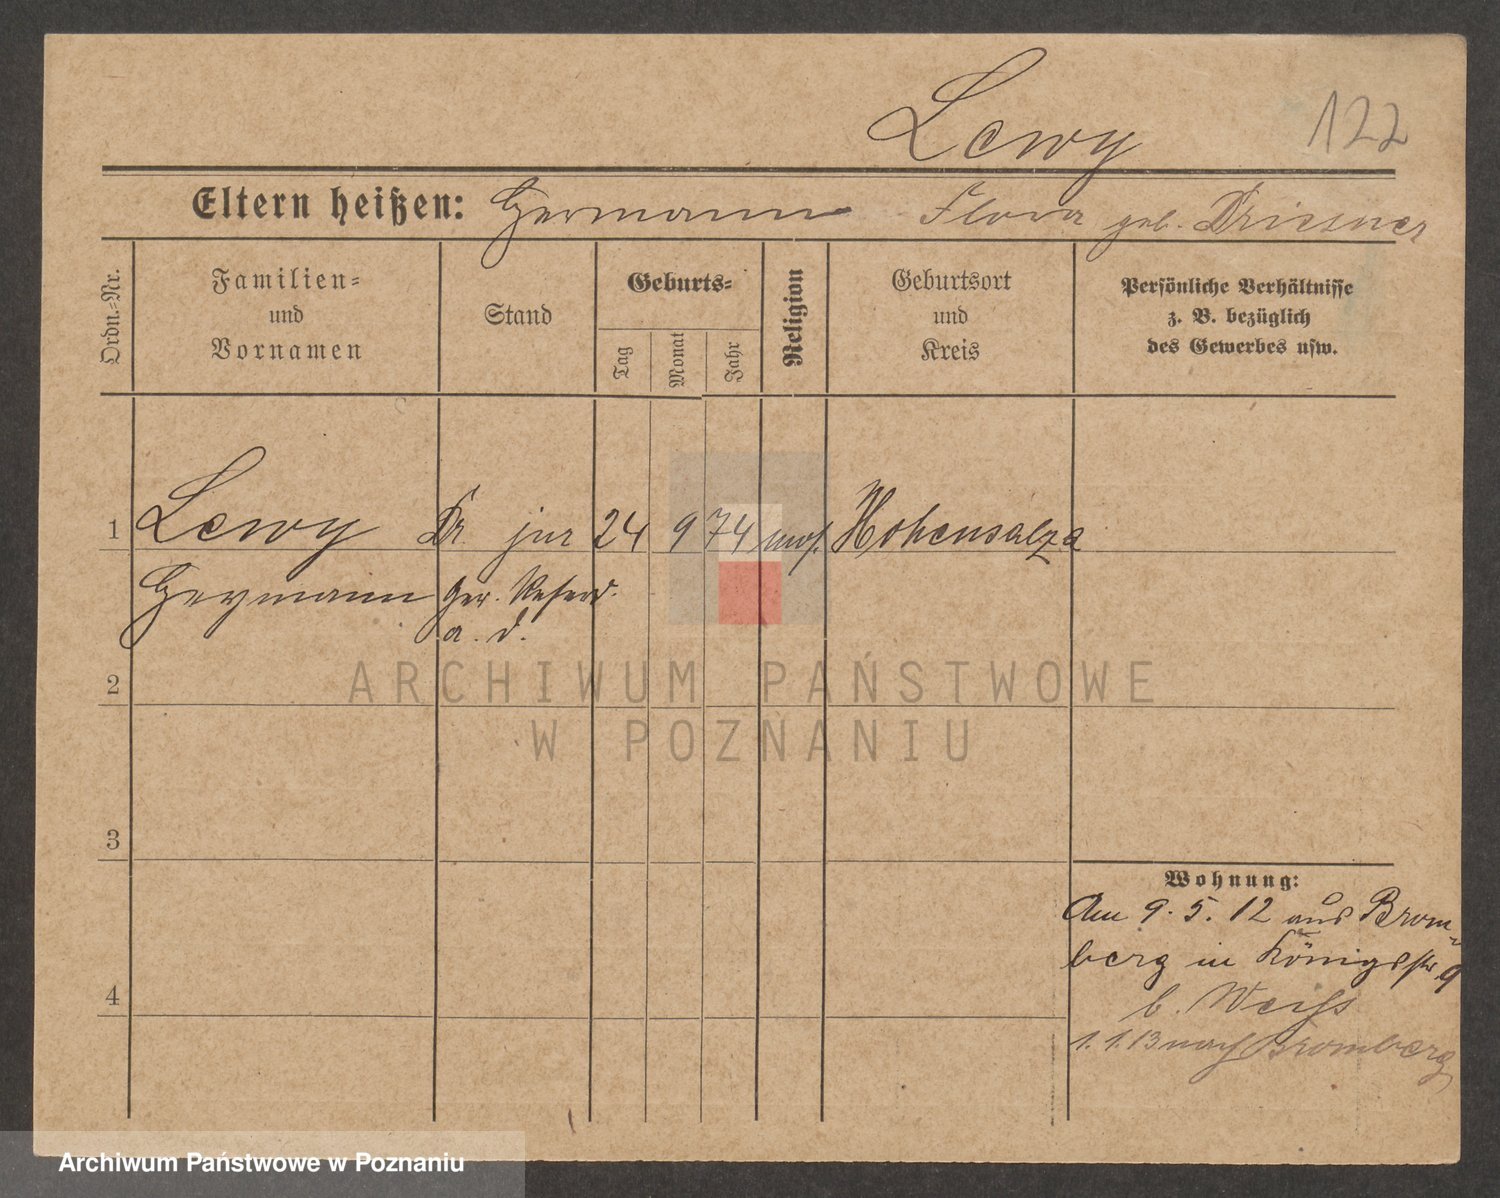 Lewy
122
Eltern heißen: Hermann Flora geb. Driesner
Ordn.=Nr.
Familien=
und
Vornamen
Stand
Geburts=
Tag
Monat
Jahr
Religion
Geburtsort
und
Kreis
Persönliche Verhältnisse
z. B. bezüglich
des Gewerbes usw.
1 Lewy Dr. jur 24 9 74 mos. Hohensalza
Heymann Ger. Referd.
a. d.
2
3
4
Wohnung:
Am 9. 5. 12 aus Brom=
berg in Königsstr 9
b. Weiss
1. 1. 13 nach Bromberg
ARCHIWUM PAŃSTWOWE
W POZNANIU
Archiwum Państwowe w Poznaniu